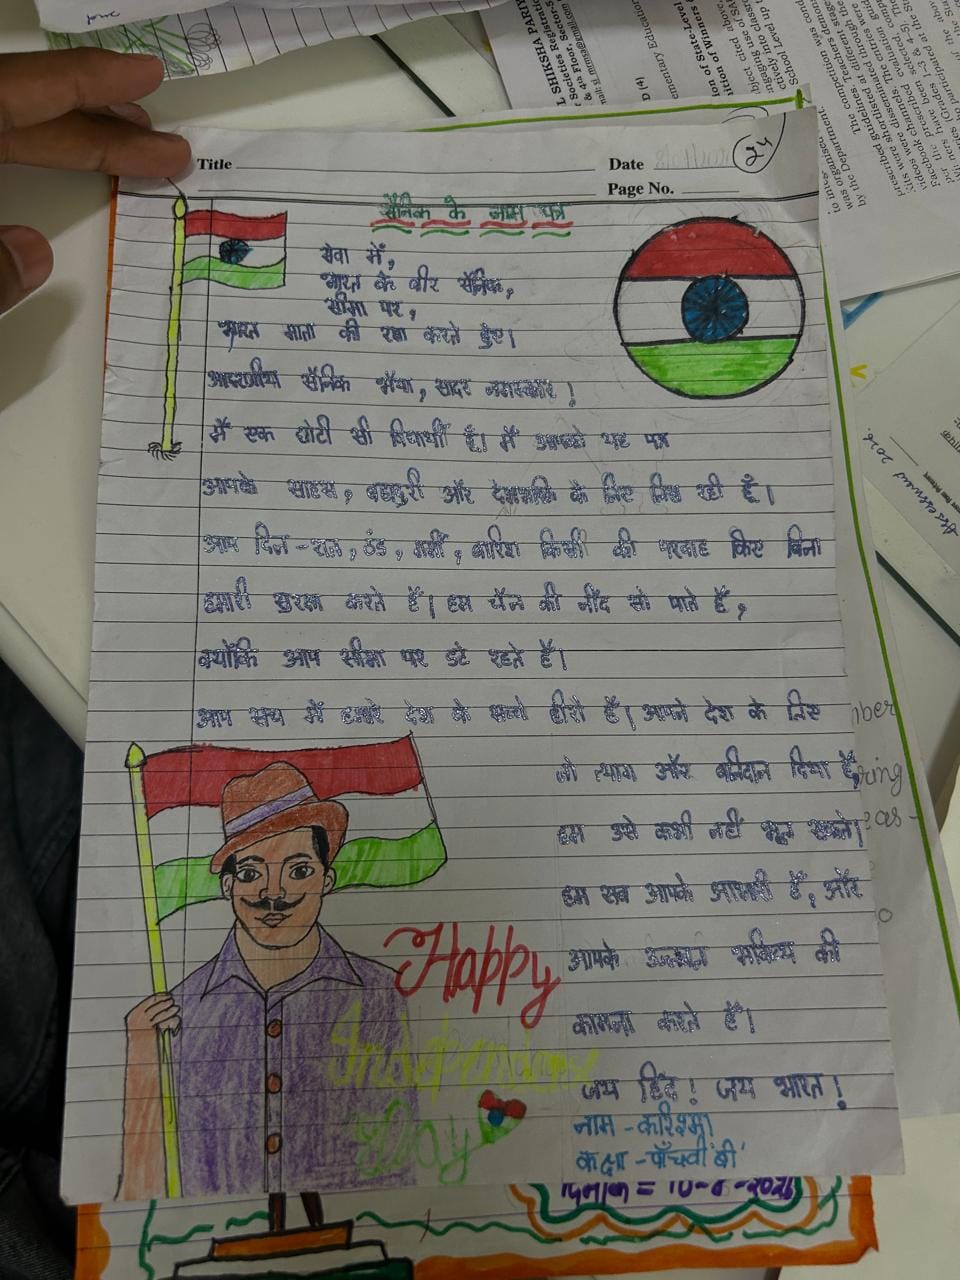 Title
Date
24
Page No.
सैनिक के नाम पत्र
सेवा में,
भारत के वीर सैनिक,
सीमा पर,
भारत माता की रक्षा करते हुए।
आदरणीय सैनिक भैया, सादर नमस्कार!
मैं एक छोटी सी विद्यार्थी हूँ। मैं आपको यह पत्र
आपके साहस, बहादुरी और देशभक्ति के लिए लिख रही हूँ।
आप दिन-रात, ठंड, गर्मी, बारिश किसी की परवाह किए बिना
हमारी सुरक्षा करते हैं। हम चैन की नींद सो पाते हैं,
क्योंकि आप सीमा पर डटे रहते हैं।
आप सच में हमारे देश के सच्चे हीरो हैं। आपने देश के लिए
जो त्याग और बलिदान दिया है,
हम उसे कभी नहीं भूल सकते।
हम सब आपके आभारी हैं, और
आपके उज्जवल भविष्य की
कामना करते हैं।
जय हिंद! जय भारत!
नाम - करिश्मा
कक्षा - पाँचवी 'बी'
Happy
Independence
Day